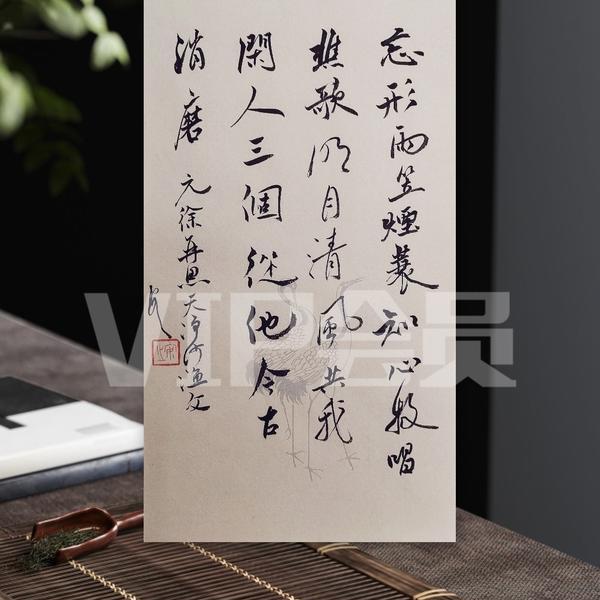 忘形雨笠煙蓑知心牧唱
樵歌明月清風共我
閑人三個從他今古
消磨
元徐再思天净沙漁父
VIP会员